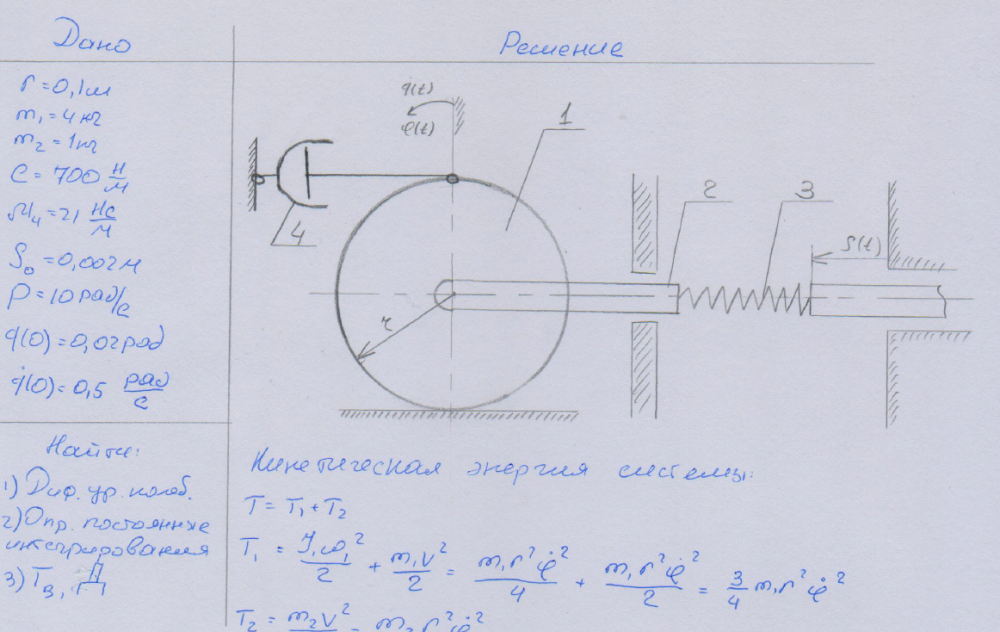 Дано
Решение
r = 0,1 м
m₁ = 4 кг
m₂ = 1 кг
C = 700 Н/м
μ₄ = 21 Нс/м
S₀ = 0,002 м
P = 10 рад/с
q(0) = 0,02 рад
q̇(0) = 0,5 рад/с
q(t)
φ(t)
1
2
3
S(t)
4
r
Найти:
1) Диф. ур. колеб.
2) Опр. постоянные
интегрирования
3) T_в,
Кинетическая энергия системы:
T = T₁ + T₂
T₁ = J₁ω₁²/2 + m₁V²/2 = m₁r²φ̇²/4 + m₁r²φ̇²/2 = 3/4 m₁r²φ̇²
T₂ = m₂V²/2 = m₂r²φ̇²